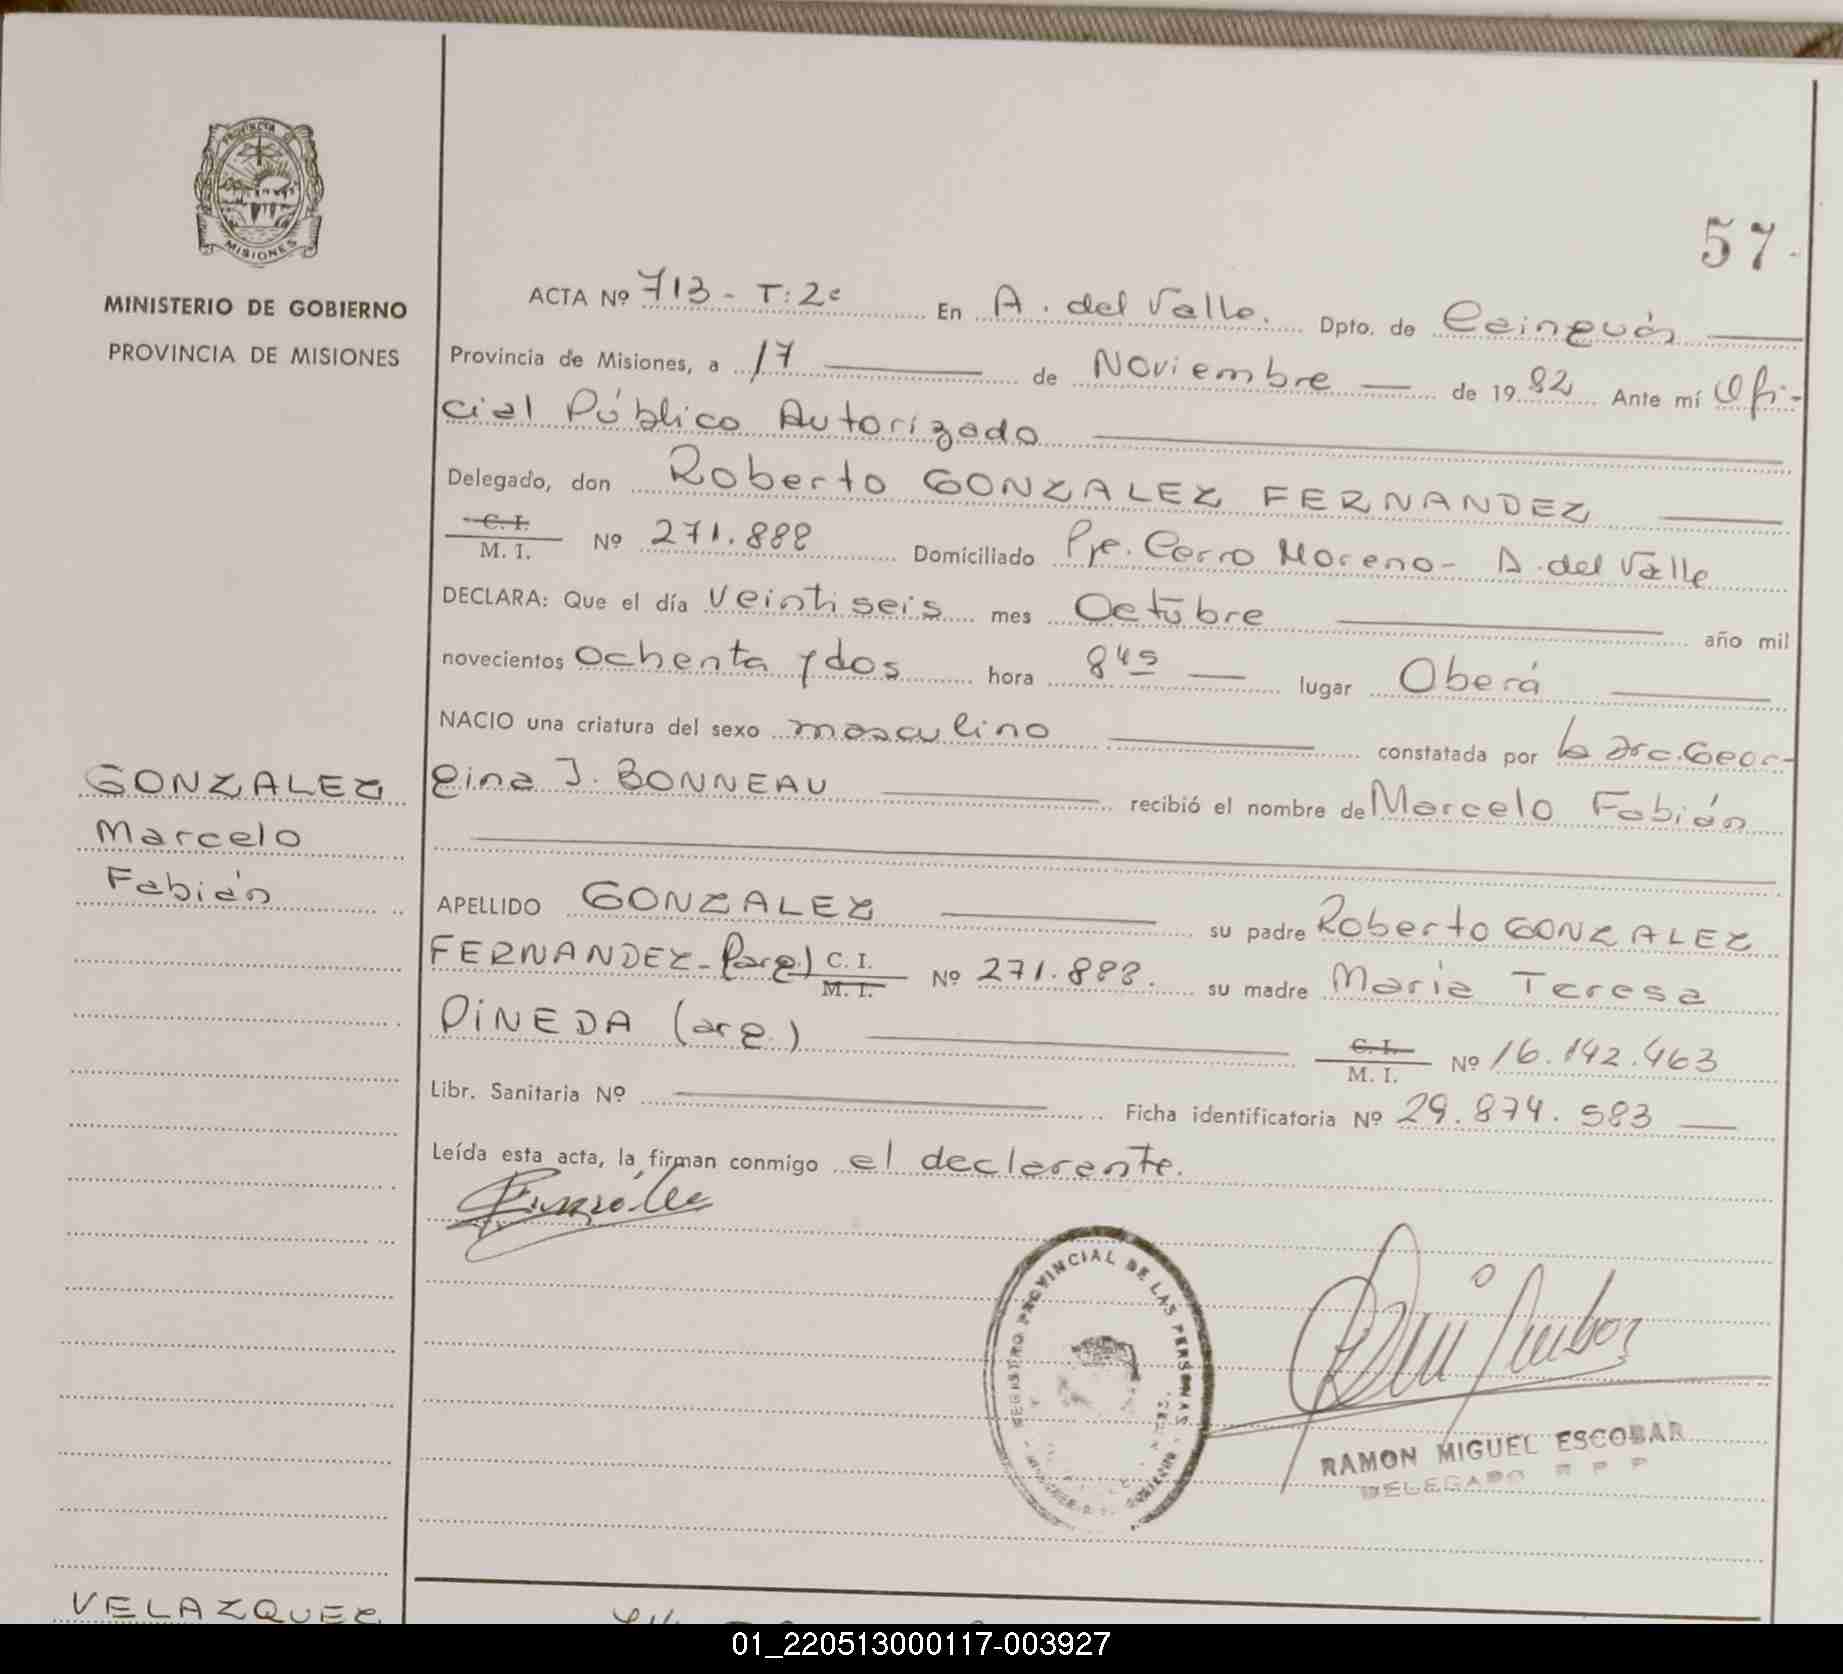 PROVINCIA DE
MISIONES
MINISTERIO DE GOBIERNO
PROVINCIA DE MISIONES
57.
ACTA Nº 713 - T: 2º En A. del Valle. Dpto. de Cainguás
Provincia de Misiones, a 17 de Noviembre de 1982 Ante mí Ofi-
cial Público Autorizado
Delegado, don Roberto GONZALEZ FERNANDEZ
C. I.
M. I. Nº 271.888 Domiciliado Pje. Cerro Moreno - A. del Valle
DECLARA: Que el día veintiseis mes Octubre año mil
novecientos ochenta y dos hora 8 45 lugar Oberá
NACIO una criatura del sexo masculino constatada por la Dra. Geor-
gina J. BONNEAU recibió el nombre de Marcelo Fabián
GONZALEZ
Marcelo
Fabián
APELLIDO GONZALEZ su padre Roberto GONZALEZ
FERNANDEZ - (parg.) C. I.
M. I. Nº 271.888. su madre Maria Teresa
PINEDA (arg.) C. I.
M. I. Nº 16.142.463
Libr. Sanitaria Nº Ficha identificatoria Nº 29.874.583
Leída esta acta, la firman conmigo el declarante.
REGISTRO PROVINCIAL DE LAS PERSONAS
RAMON MIGUEL ESCOBAR
DELEGADO R P P
VELAZQUEZ
01_220513000117-003927